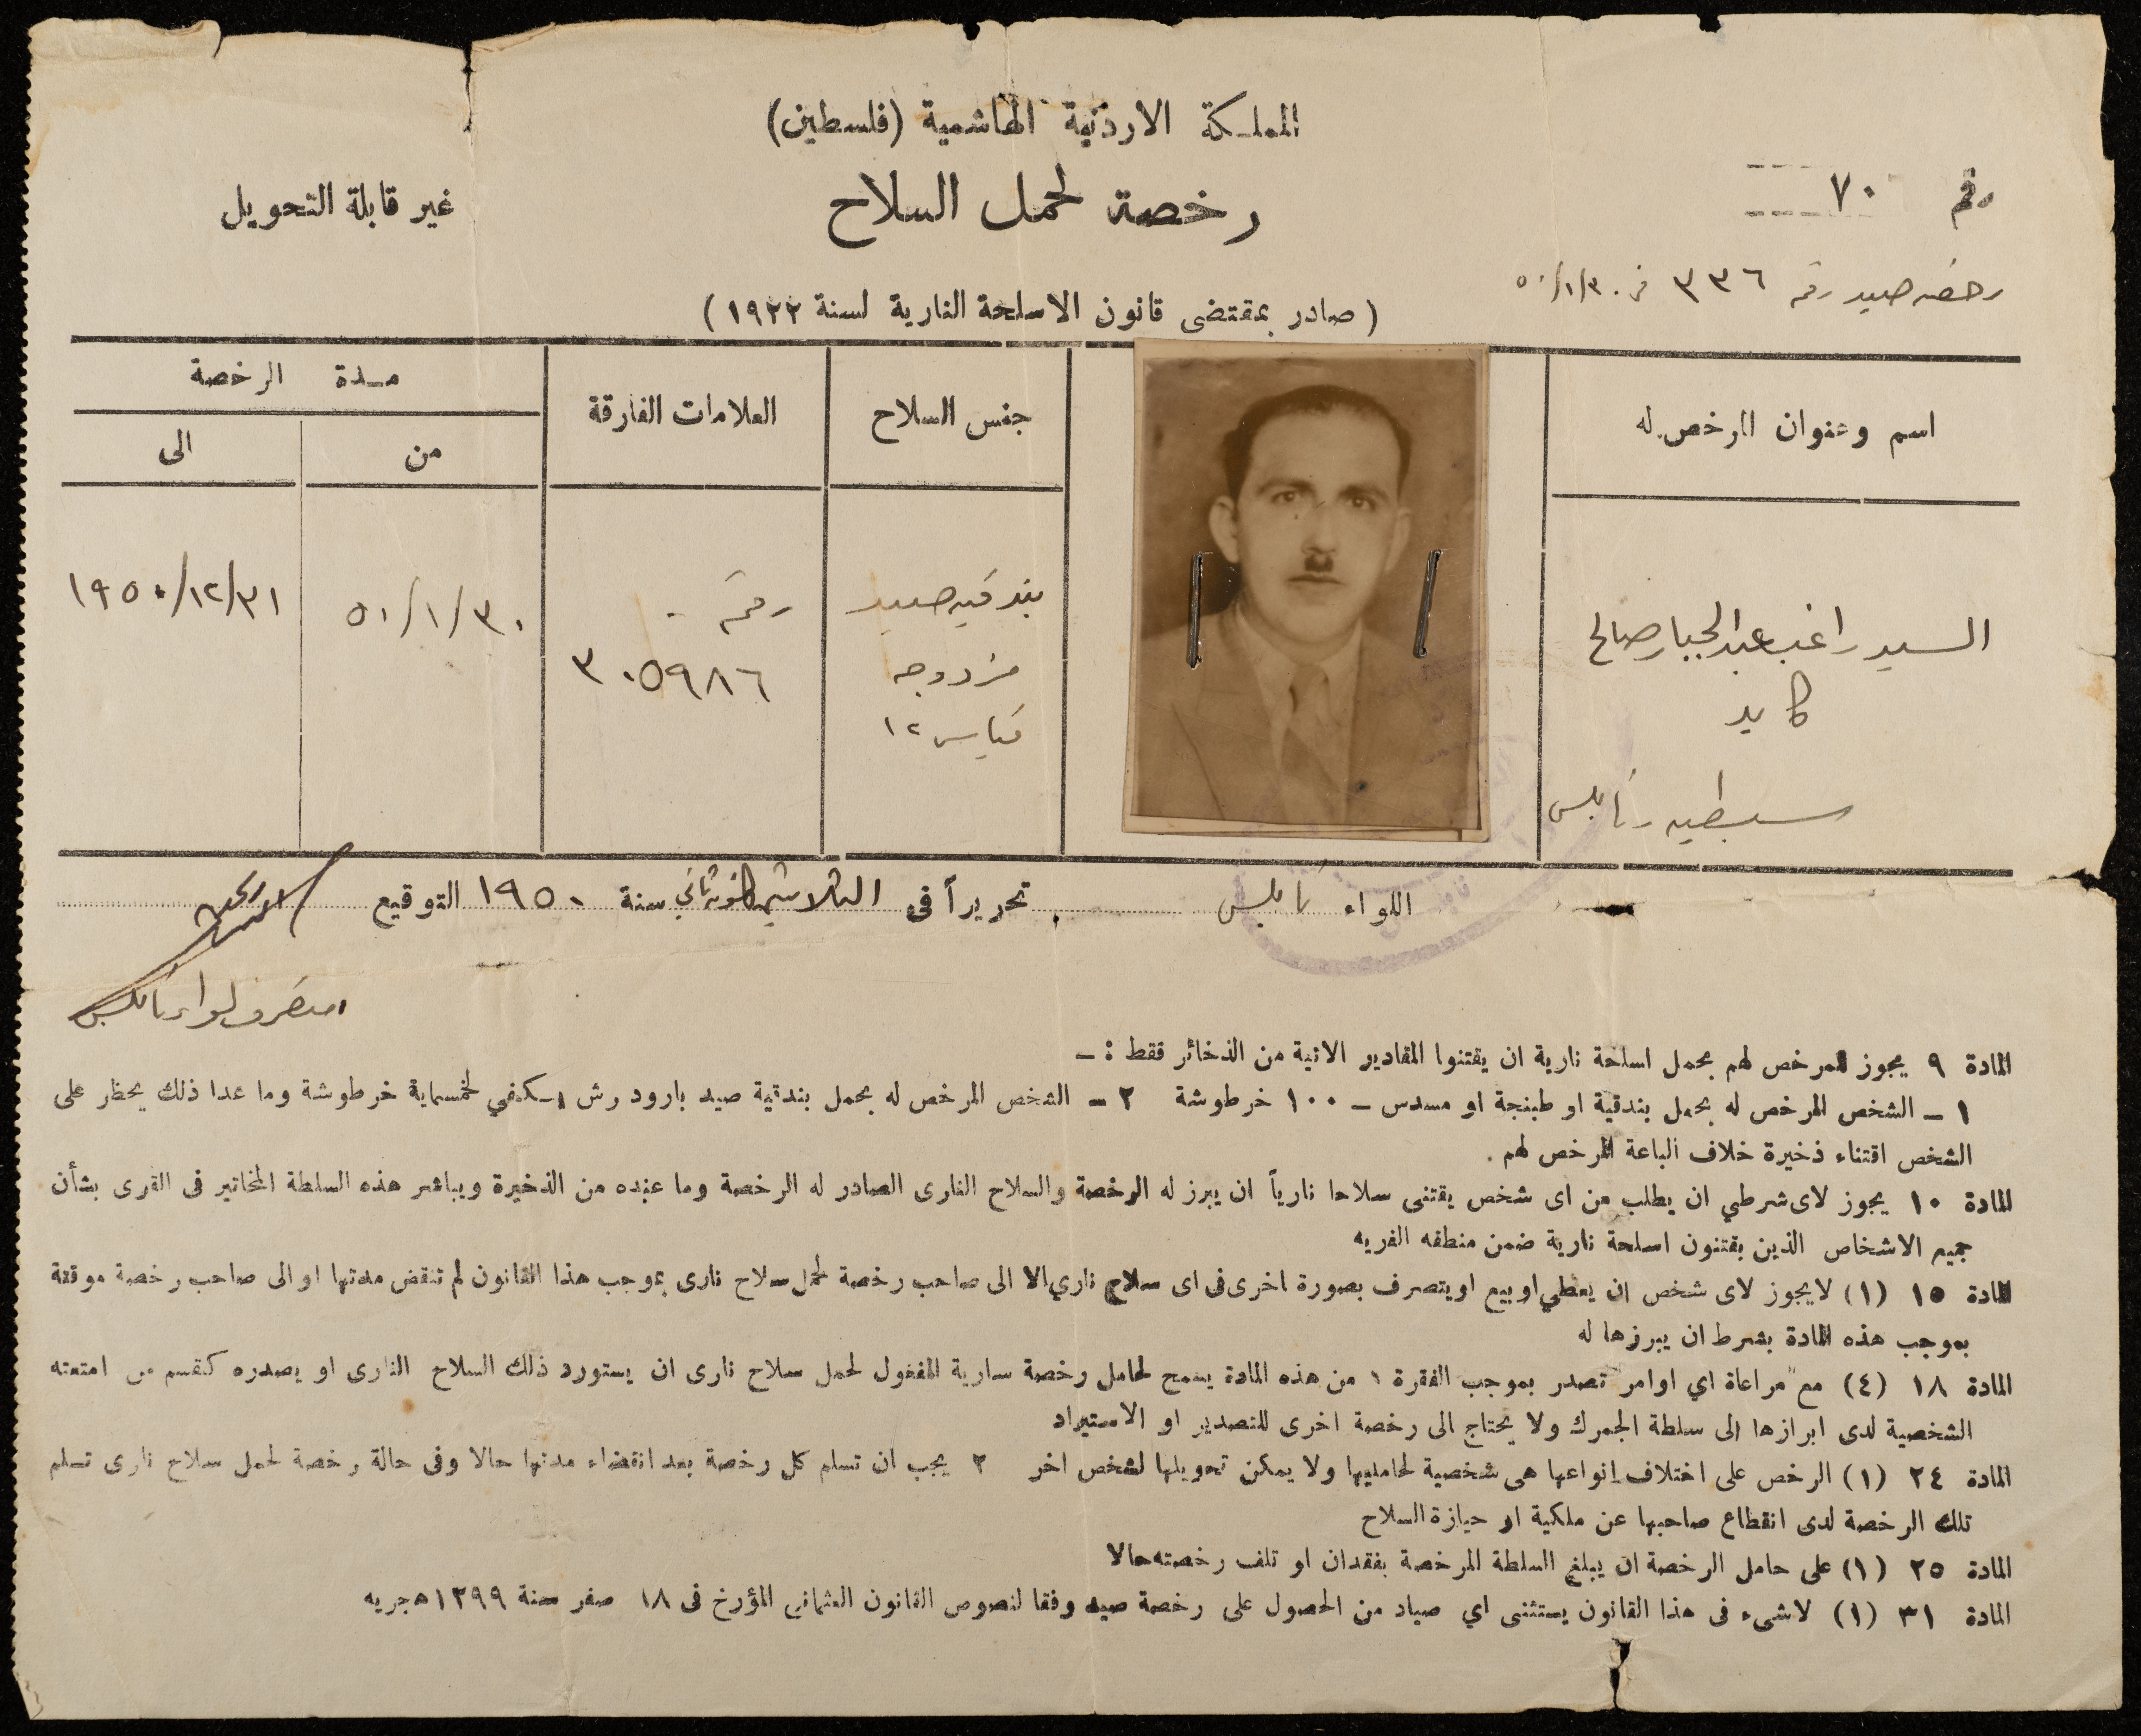 المملكة الاردنية الهاشمية (فلسطين)
رقم ٧٠
رخصة لحمل السلاح
غير قابلة التحويل
رخصه صيد رقم ٣٣٦ في ٥٠/١/٣٠
(صادر بمقتضى قانون الاسلحة النارية لسنة ١٩٢٢)
اسم وعنوان المرخص له
جنس السلاح
العلامات الفارقة
مدة الرخصة
من
الى
السيد راغب عبد الجبار صالح
كايد
سبسطيه نابلس
بندقيه صيد
مزدوجه
قياس ١٢
رقم
٣٠٥٩٨٦
٥٠/١/٣٠
١٩٥٠/١٢/٣١
اللواء نابلس تحريراً في الثلاثين كانون ثاني سنة ١٩٥٠ التوقيع
متصرف لواء نابلس
المادة ٩ يجوز للمرخص لهم بحمل اسلحة نارية ان يقتنوا المقادير الاتية من الذخائر فقط : ــ
١ ــ الشخص المرخص له بحمل بندقية او طبنجة او مسدس ــ ١٠٠ خرطوشة ٢ ــ الشخص المرخص له بحمل بندقية صيد بارود رش يكفي لخمسماية خرطوشة وما عدا ذلك يحظر على
الشخص اقتناء ذخيرة خلاف الباعة المرخص لهم .
المادة ١٠ يجوز لاى شرطي ان يطلب من اى شخص يقتنى سلاحا نارياً ان يبرز له الرخصة والسلاح النارى الصادر له الرخصة وما عنده من الذخيرة ويباشر هذه السلطة المخاتير فى القرى بشأن
جميع الاشخاص الذين يقتنون اسلحة نارية ضمن منطقه القريه
المادة ١٥ (١) لا يجوز لاى شخص ان يعطي او بيع او يتصرف بصورة اخرى فى اى سلاح ناري الا الى صاحب رخصة لحمل سلاح نارى بموجب هذا القانون لم تنقض مدتها او الى صاحب رخصة موقتة
بموجب هذه المادة بشرط ان يبرزها له
المادة ١٨ (٤) مع مراعاة اي اوامر تصدر بموجب الفقرة ١ من هذه المادة يسمح لحامل رخصة سارية المفعول لحمل سلاح نارى ان يستورد ذلك السلاح النارى او يصدره كقسم من امتعته
الشخصية لدى ابرازها الى سلطة الجمرك ولا يحتاج الى رخصة اخرى للتصدير او الاستيراد
المادة ٢٤ (١) الرخص على اختلاف انواعها هى شخصية لحامليها ولا يمكن تحويلها لشخص اخر ٢ يجب ان تسلم كل رخصة بعد انقضاء مدتها حالا وفى حالة رخصة لحمل سلاح نارى تسلم
تلك الرخصة لدى انقطاع صاحبها عن ملكية او حيازة السلاح
المادة ٢٥ (١) على حامل الرخصة ان يبلغ السلطة المرخصة بفقدان او تلف رخصته حالا
المادة ٣١ (١) لا شىء فى هذا القانون يستثنى اي صياد من الحصول على رخصة صيد وفقا لنصوص القانون العثمانى المؤرخ فى ١٨ صفر سنة ١٢٩٩ هجريه